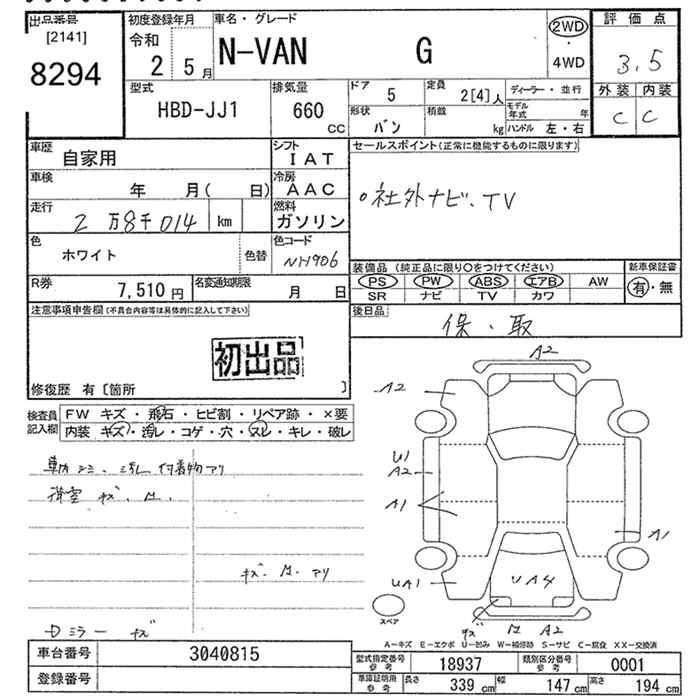 出品番号
[2141]
8294
初度登録年月
令和
2 5月
車名・グレード
N-VAN G
2WD
・
4WD
評価点
3.5
外装 内装
C C
型式
HBD-JJ1
排気量
660
CC
ドア 5
定員 2[4]人
ディーラー・並行
形状 バン
積載 kg
モデル年式 年
ハンドル 左・右
車歴 自家用
シフト IAT
車検 年 月( 日)
冷房 AAC
走行 2万8千014 km
燃料 ガソリン
色 ホワイト
色替
色コード NH906
R券 7,510円
名変通知期限 月 日
セールスポイント(正常に機能するものに限ります)
○社外ナビ、TV
装備品 (純正品に限り○をつけてください)
PS PW ABS エアB AW
SR ナビ TV カワ
新車保証書
有・無
後日品 保・取
注意事項申告欄(不具合内容等は具体的に記入して下さい)
初出品
修復歴 有〔箇所 〕
検査員記入欄
FW キズ・飛石・ヒビ割・リペア跡・×要
内装 キズ・汚レ・コゲ・穴・スレ・キレ・破レ
車内 シミ、汚レ 付着物アリ
荷室 キズ、凹、
キズ、凹、アリ
ミラー キズ
A2
A2
U1
A2
A1
A1
UA1
UA4
キズ 凹 A2
スペア
A-キズ E-エクボ U-凹み W-補修跡 S-サビ C-腐食 XX-交換済
車台番号 3040815
登録番号
型式指定番号 参考 18937
類別区分番号 参考 0001
車庫証明用 参考
長さ 339cm
幅 147cm
高さ 194cm